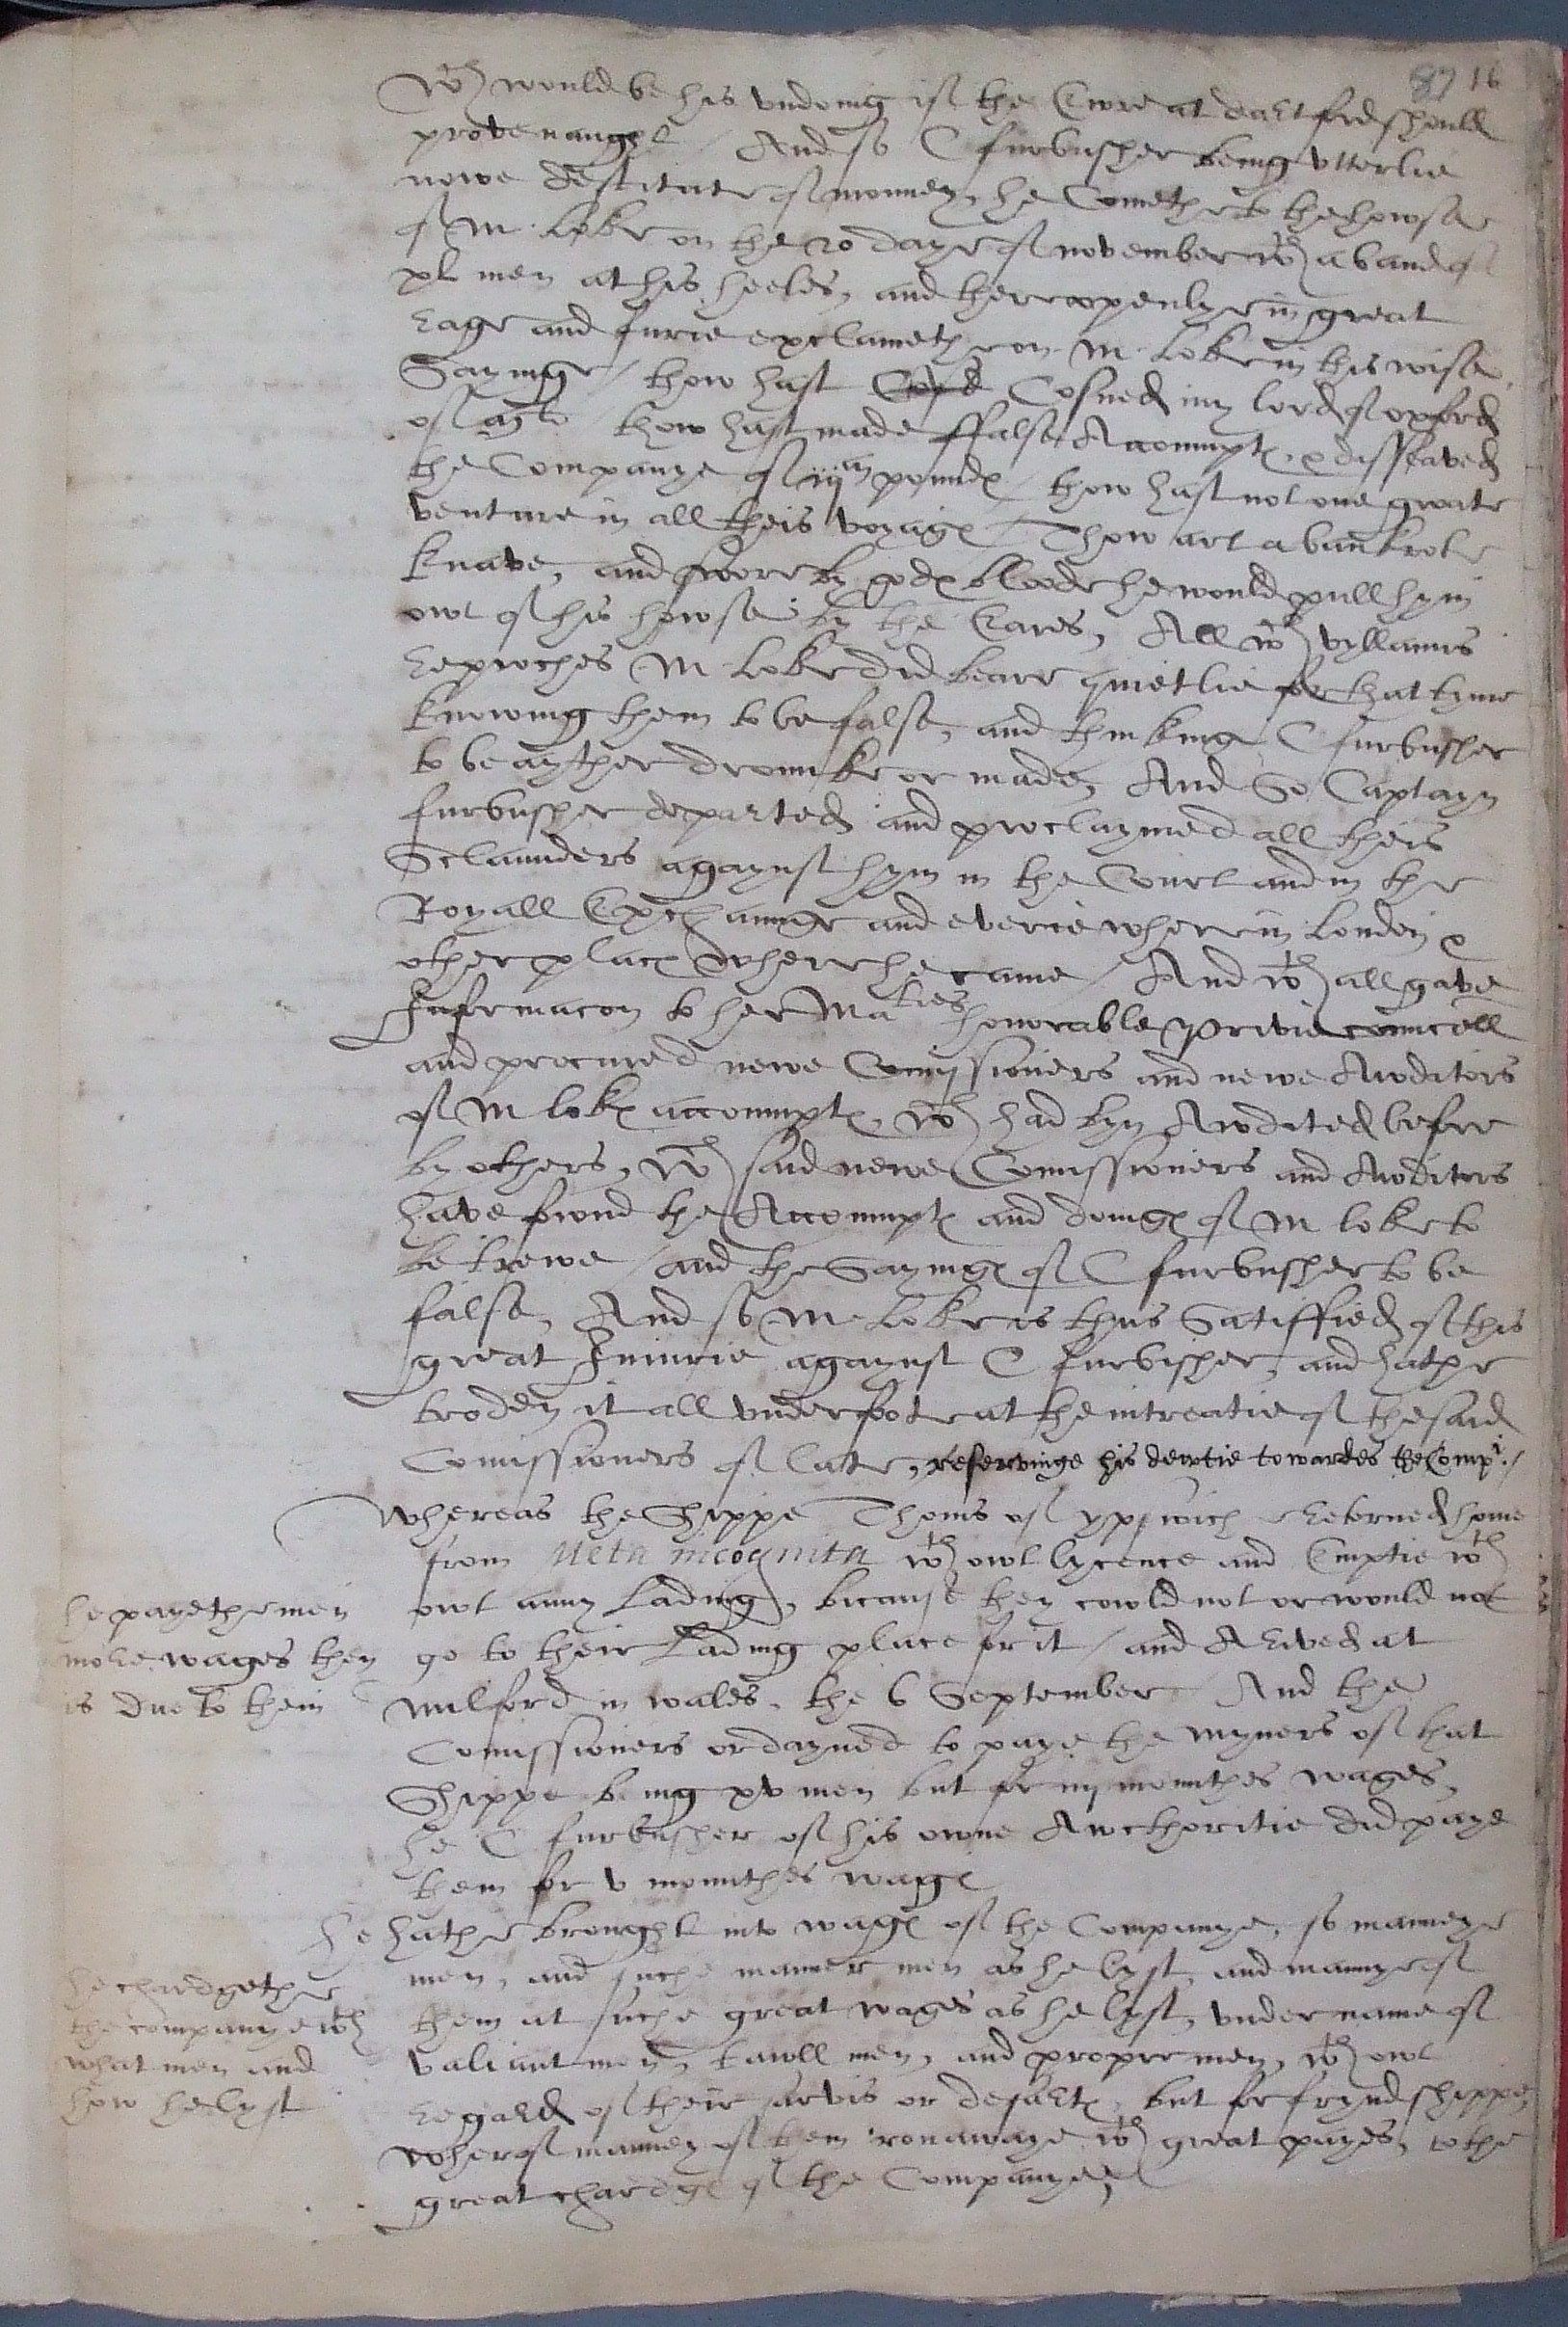 87 16
wch would be his undoing if the Ewre at dartford should
prove naught / And so C furbusher being utterlie
nowe destitute of monney, he Comethe to the howse
of M. Lok on the 20 daye of november wth a band of
xl men at his heeles, and there openlye in great
rage and furie exclamethe on M. Lok in this wise,
Sayinge / thow hast Cosned my lord of oxford
of mli thow hast made ffalse Accompts, & dissceaved
the Companye of iijm pounds / thow hast not one groate
venture in all theis voyages / Thow art a bankrote
knave, and swore by gods bloode he would pull hym
owt of his howse by the Eares, All wch vyllanus
reproches M. Loke did beare quietlie for that tyme
knowing them to be false, and thinking C furbusher
to be ayther dronnke or madd, And So Captayn
furbusher departed and proclaymed all theis
Sclaunders agaynst hym in the Court and in the
Royall Exchaunge and everie where in London &
other places where he came / And wth all gave
Informacon to her Maties honorable privie councell
and procured newe Comissioners and newe Awditors
of M loks accompts, wch had byn Awdited before
by others, wch said newe Comissioners and Awditors
have fownd the Accompts and doings of M loke to
be trewe / and the Sayings of C furbusher to be
false, And so M. Loke is thus Satiffied of this
great Iniurie agaynst C furbisher, and hathe
troden it all under foote at the intreatie of the said
Comissioners of late, reservinge his dewtie towardes the Compa. /
Whereas the Shippe Thoms of ypswich retorned home
from Meta incognita wth owt lycence and Emptie wth
he payethe men owt anny Lading, bicause they cowld not or would not
more wages then go to their Lading place for it / and Arived at
is due to them milford in wales, the 6 September And the
Comissioners ordayned to paye the myners of that
Shippe being xv men but for iiij monnthes wages,
he C furbusher of his owne Awcthoritie did paye
them for v monnthes wages
he hathe brought into wages of the Companye, so manneye
he chardgethe men, and suche manner men as he lyst, and mannye of
the companye wth them at suche great wages as he lyst, under name of
what men and valiant men, tawll men, and propre men, wth owt
how he lyst regard of their sarvis or desarts, but for fryndshippe,
wherof manney of them ron awaye wth great payes, to the
great chardges of the Companye,